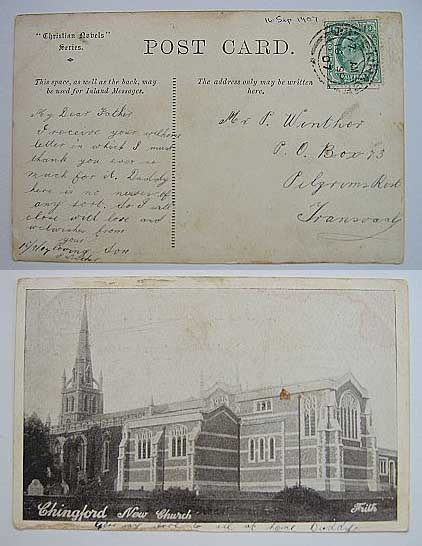 16 Sep 1907
"Christian Novels"
Series.
POST CARD.
This space, as well as the back, may
be used for Inland Messages.
The address only may be written
here.
My Dear Father
I receive your welcome
letter in which I must
thank you ever so
much for it. Daddy
here is no news of
any sort. So I will
close with love and
welwishes from
your
loving Son
Mr P. Winther
P. O. Box 73
Pilgrims Rest
Transvaal
Chingford New Church
Frith
to all at home Daddy